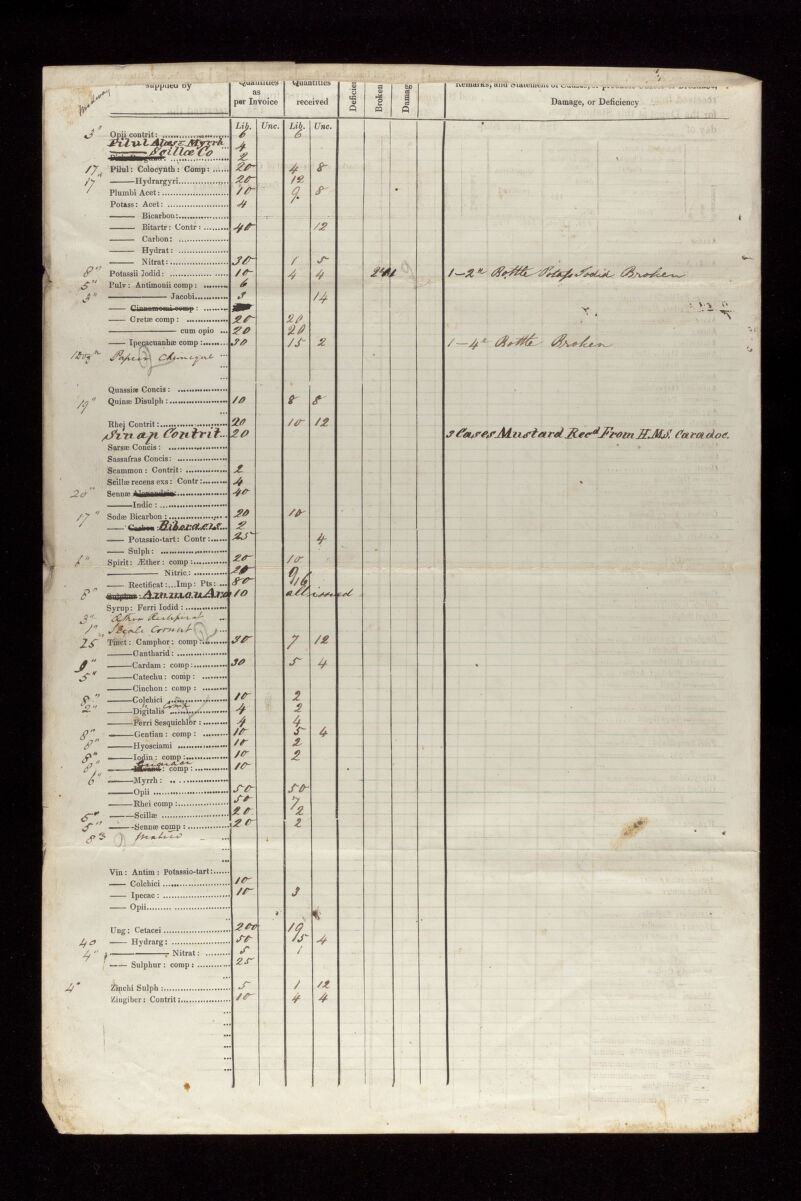 Medway
supplied by Quantities as per Invoice Quantities received Broken Damage, or Deficiency
Lib. Unc. Lib. Unc.
3" Opii contrit: 6 6
Pilul Aloes c Myrrh 4
Scillæ Co 2
17" Pilul: Colocynth: Comp: 20 4 8
17" —Hydrargyri 20 12
Plumbi Acet: 10 9 8
Potass: Acet: 4
— Bicarbon:
— Bitartr: Contr: 40 12
— Carbon:
— Hydrat:
— Nitrat: 30 1 5
8" Potassii Iodid: 10 4 4 1–2" Bottle Potass Iodid Broken
5" Pulv: Antimonii comp: 6
3" — Jacobi 3 14
— Cinnamomi comp:
— Cretæ comp: 20 20
— cum opio 20 20
— Ipecacuanhæ comp: 30 15 2 1–4" Bottle Broken
Papier Chimique
Quassiæ Concis:
19" Quinæ Disulph: 10 8 8
Rhei Contrit: 20 10 12
Sinap Contrit 20 3 Cases Mustard Recd From H.M.S. Caradoc.
Sarsæ Concis:
Sassafras Concis:
Scammon: Contrit: 2
Scillæ recens exs: Contr: 4
20" Sennæ Alexandriæ 40
—Indic:
17" Sodæ Bicarbon: 20 10
— Carbon Biboracis 2
— Potassio-tart: Contr: 25 4
— Sulph:
6" Spirit: Æther: comp: 20 10
— Nitric: 20
— Rectificat:...Imp: Pts: 80 9/16
8" Ammon Aro 10 all issued
Syrup: Ferri Iodid:
3"
1"
25 Tinct: Camphor: comp: 30 7 12
—Cantharid:
9" —Cardam: comp: 30 5 4
5" —Catechu: comp:
—Cinchon: comp:
8" —Colchici 10 2
2" —Digitalis 4 2
—Ferri Sesquichlor: 4 4
8" —Gentian: comp: 10 5 4
8" —Hyosciami 10 2
8" —Iodin: comp: 10 2
8" — comp: 10
6" —Myrrh:
—Opii 50 50
—Rhei comp: 50 7
5" —Scillæ 20 2
5" —Sennæ comp: 20 2
8 Matico
Vin: Antim: Potassio-tart:
— Colchici 10
— Ipecac: 10 3
— Opii
Ung: Cetacei 200 19
40 — Hydrarg: 50 15 4
4" — Nitrat: 5 1
— Sulphur: comp: 25
4" Zinchi Sulph: 5 1 12
Zingiber: Contrit: 10 4 4